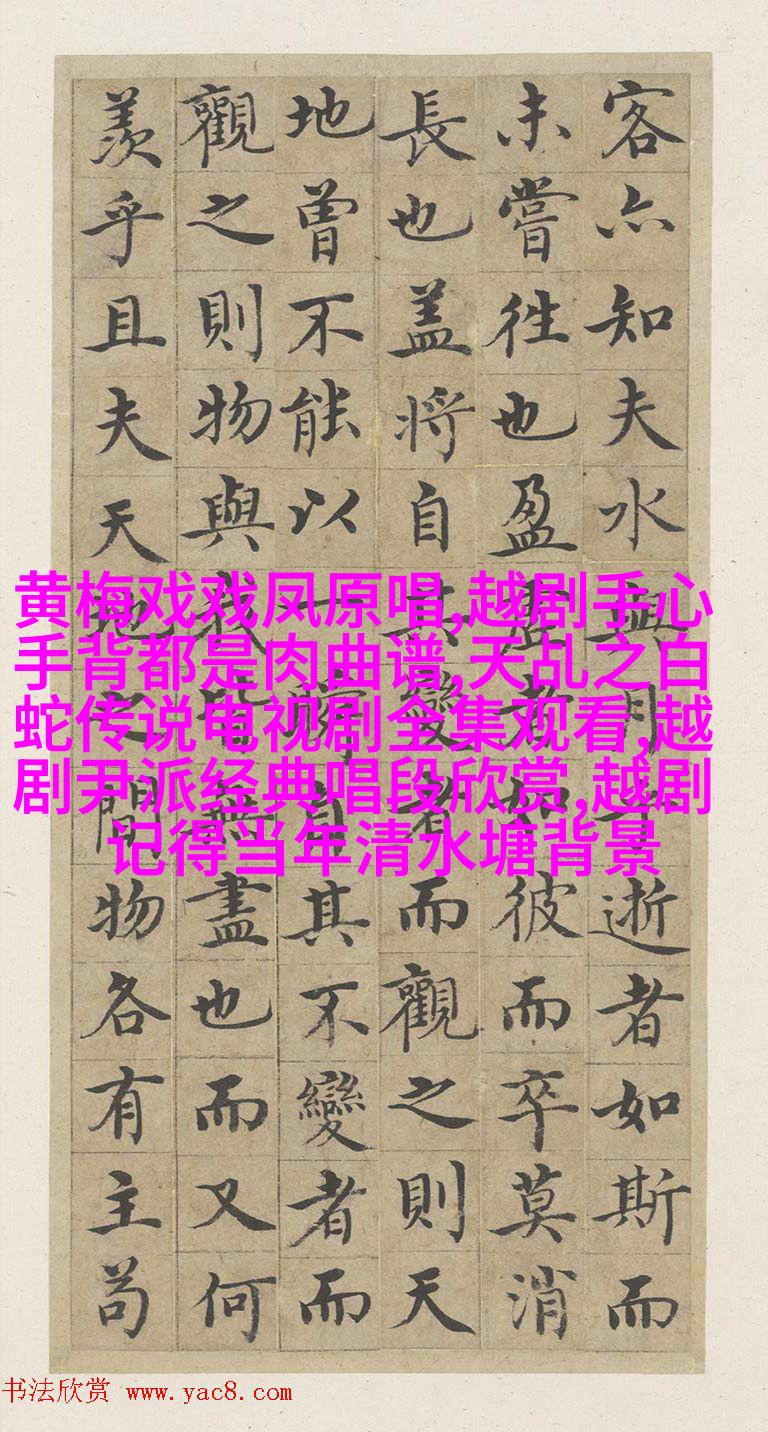 客亦知夫水與月乎逝者如斯而
未嘗往也盈虛者如彼而卒莫消
長也盖將自其變者而觀之則天
地曾不能以一瞬自其不變者而
觀之則物與我皆無盡也而又何
羨乎且夫天地之間物各有主苟
黄梅戏戏凤原唱,越剧手心
手背都是肉曲谱,天乱之白
蛇传说电视剧全集观看,越
剧尹派经典唱段欣赏,越剧
记得当年清水塘背景
书法欣赏 www.yac8.com